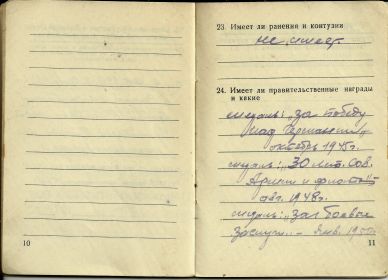 23. Имеет ли ранения и контузии
не имеет.
24. Имеет ли правительственные награды
и какие
медаль: „за победу
над Германией"
октябрь 1945г.
медаль: „30 лет Сов.
Армии и флота"
авг. 1948г.
медаль: „за боевые
заслуги" – янв. 1950г.
10
11